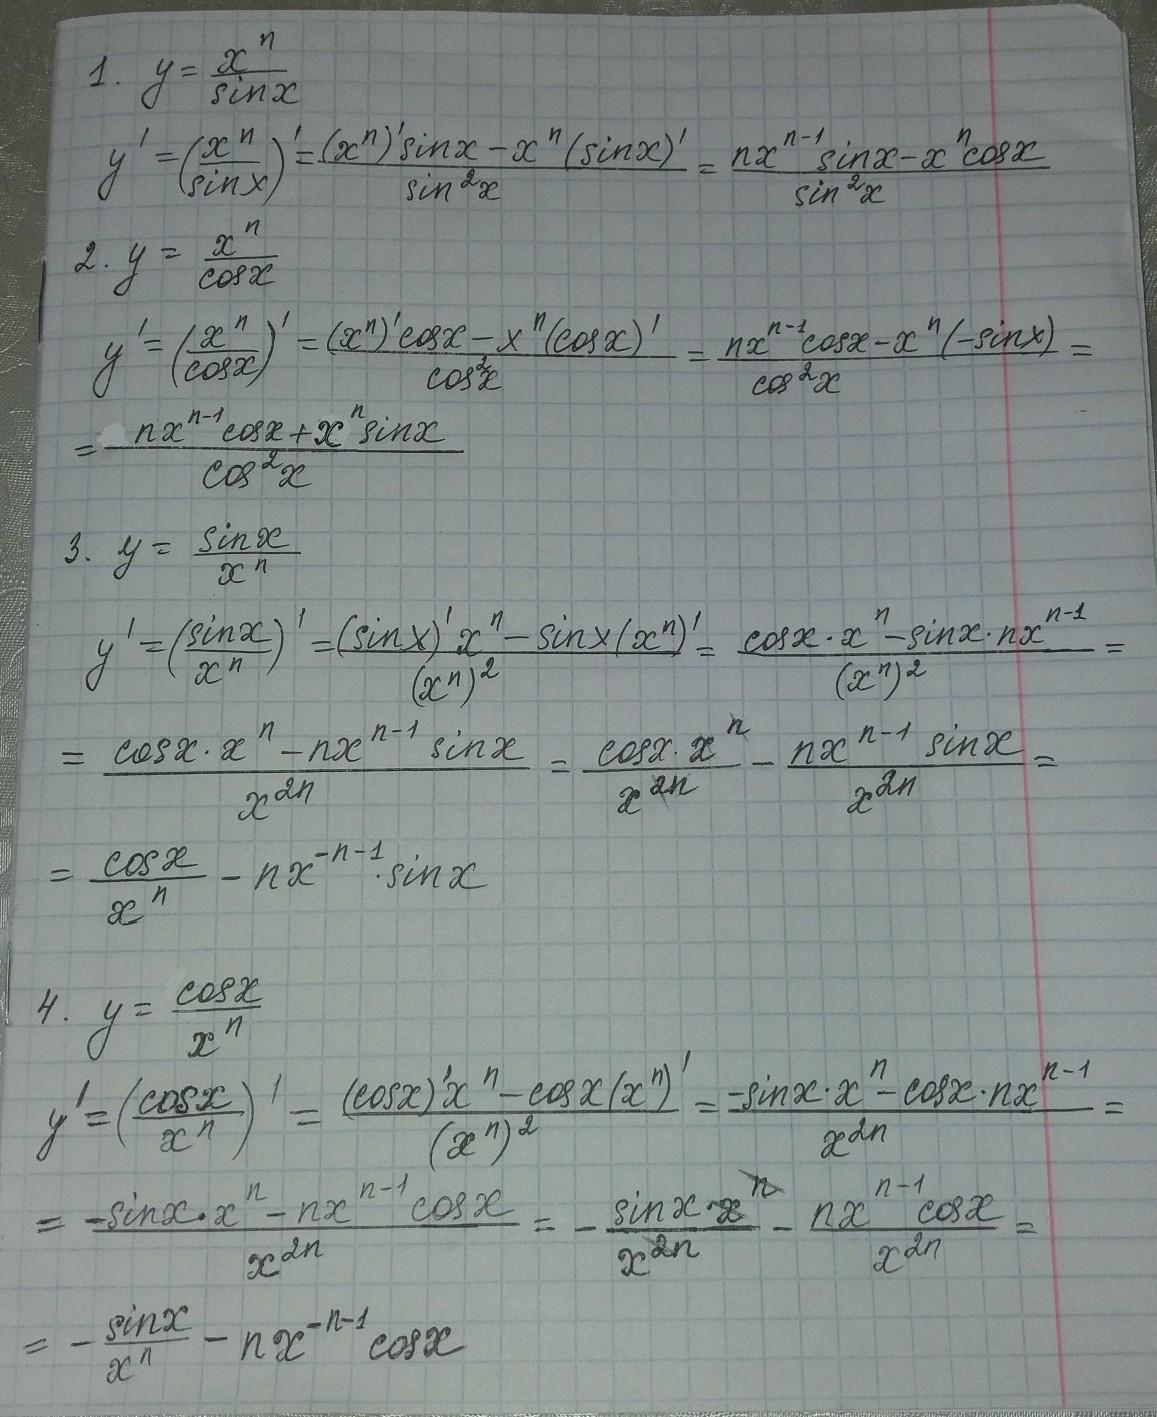 1. y = x^n / sinx
y' = (x^n / sinx)' = ((x^n)' sinx − x^n (sinx)') / sin^2 x = (nx^(n−1) sinx − x^n cosx) / sin^2 x
2. y = x^n / cosx
y' = (x^n / cosx)' = ((x^n)' cosx − x^n (cosx)') / cos^2 x = (nx^(n−1) cosx − x^n (−sinx)) / cos^2 x =
= (nx^(n−1) cosx + x^n sinx) / cos^2 x
3. y = sinx / x^n
y' = (sinx / x^n)' = ((sinx)' x^n − sinx (x^n)') / (x^n)^2 = (cosx · x^n − sinx · nx^(n−1)) / (x^n)^2 =
= (cosx · x^n − nx^(n−1) sinx) / x^(2n) = (cosx · x^n) / x^(2n) − (nx^(n−1) sinx) / x^(2n) =
= cosx / x^n − nx^(−n−1) · sinx
4. y = cosx / x^n
y' = (cosx / x^n)' = ((cosx)' x^n − cosx (x^n)') / (x^n)^2 = (−sinx · x^n − cosx · nx^(n−1)) / x^(2n) =
= (−sinx · x^n − nx^(n−1) cosx) / x^(2n) = − (sinx · x^n) / x^(2n) − (nx^(n−1) cosx) / x^(2n) =
= − sinx / x^n − nx^(−n−1) cosx